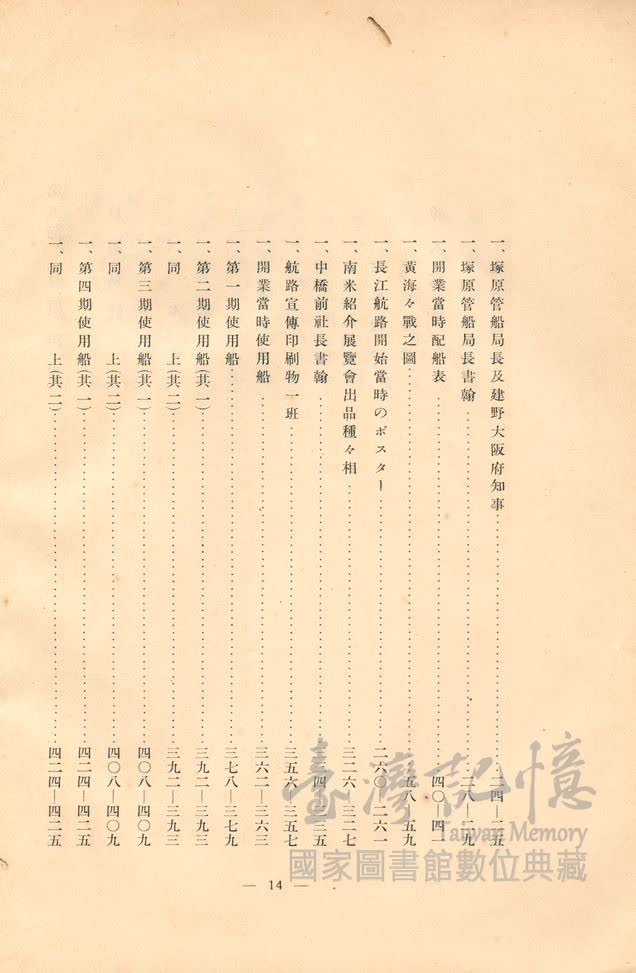 一、塚原管船局長及建野大阪府知事……二四—二五
一、塚原管船局長書翰……二八—二九
一、開業當時配船表……四〇—四一
一、黃海々戰之圖……五八—五九
一、長江航路開始當時のポスター……二六〇—二六一
一、南米紹介展覽會出品種々相……三二六—三二七
一、中橋前社長書翰……
一、航路宣傳印刷物一班……三五六—三五七
一、開業當時使用船……三六二—三六三
一、第一期使用船……三七八—三七九
一、第二期使用船(其一)……三九二—三九三
一、同　上(其二)……三九二—三九三
一、第三期使用船(其一)……四〇八—四〇九
一、同　上(其二)……四〇八—四〇九
一、第四期使用船(其一)……四二四—四二五
一、同　上(其二)……四二四—四二五
— 14 —
臺灣記憶
Taiwan Memory
國家圖書館數位典藏